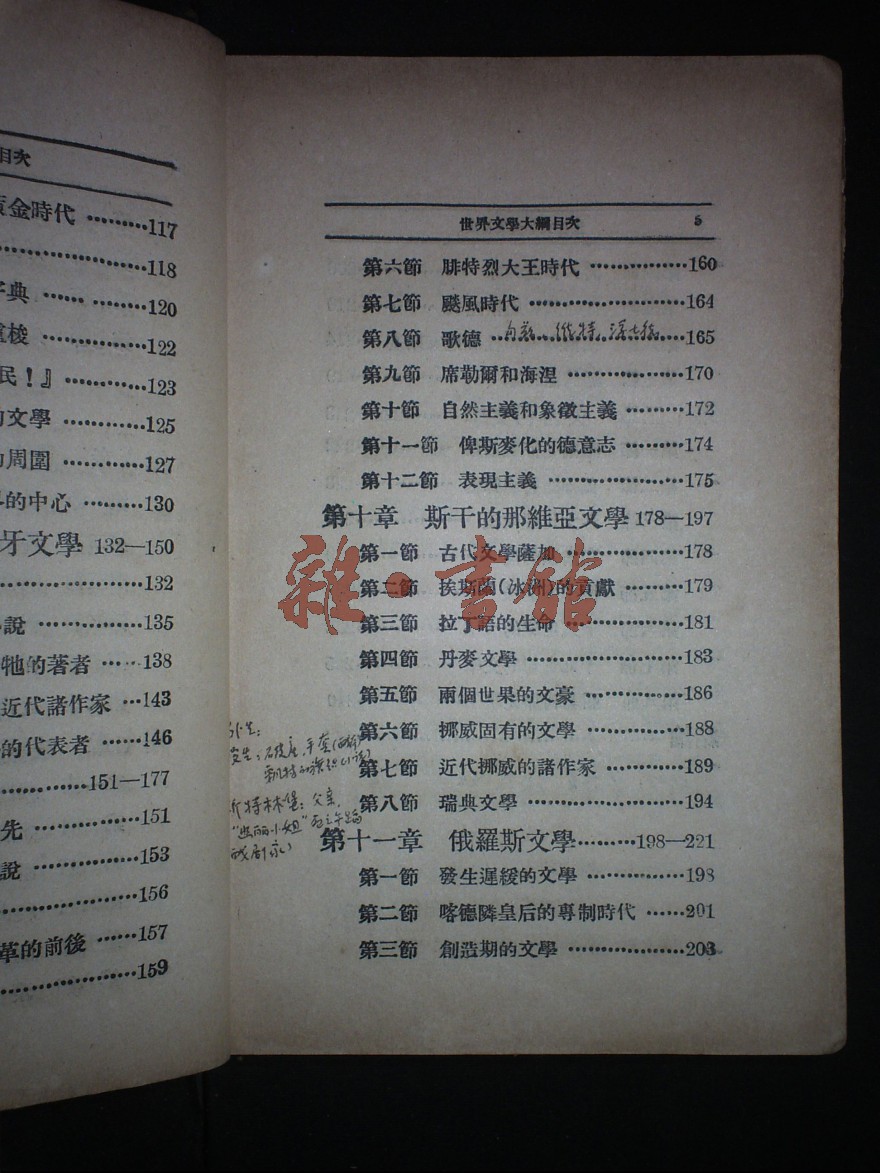 目次
金時代 ………117
……………118
字典 …… ……120
盧梭 ……………122
民！』 …………123
的文學 …………125
的周圍 …………127
的中心 ………130
牙文學 132—150
……………132
說 ……………135
牠的著者 ……138
近代諸作家 …143
的代表者 ……146
……………151—177
先 ……………151
說 ……………153
……………156
革的前後 ……157
……………159
世界文學大綱目次 5
第六節 腓特烈大王時代 ……………160
第七節 颷風時代 ……………………164
第八節 歌德 ……………………165
第九節 席勒爾和海涅 ………………170
第十節 自然主義和象徵主義 ………172
第十一節 俾斯麥化的德意志 ………174
第十二節 表現主義 …………………175
第十章 斯干的那維亞文學 178—197
第一節 古代文學薩加 ………………178
第二節 挨斯蘭(冰洲)的貢獻 ………179
第三節 拉丁語的生命 ………………181
第四節 丹麥文學 ……………………183
第五節 兩個世界的文豪 ……………186
第六節 挪威固有的文學 ……………188
第七節 近代挪威的諸作家 …………189
第八節 瑞典文學 ……………………194
斯特林堡：父亲，
小姐"
第十一章 俄羅斯文學 ……198—221
第一節 發生遲緩的文學 ……………198
第二節 喀德隣皇后的專制時代 ……201
第三節 創造期的文學 ………………203
雜·書館